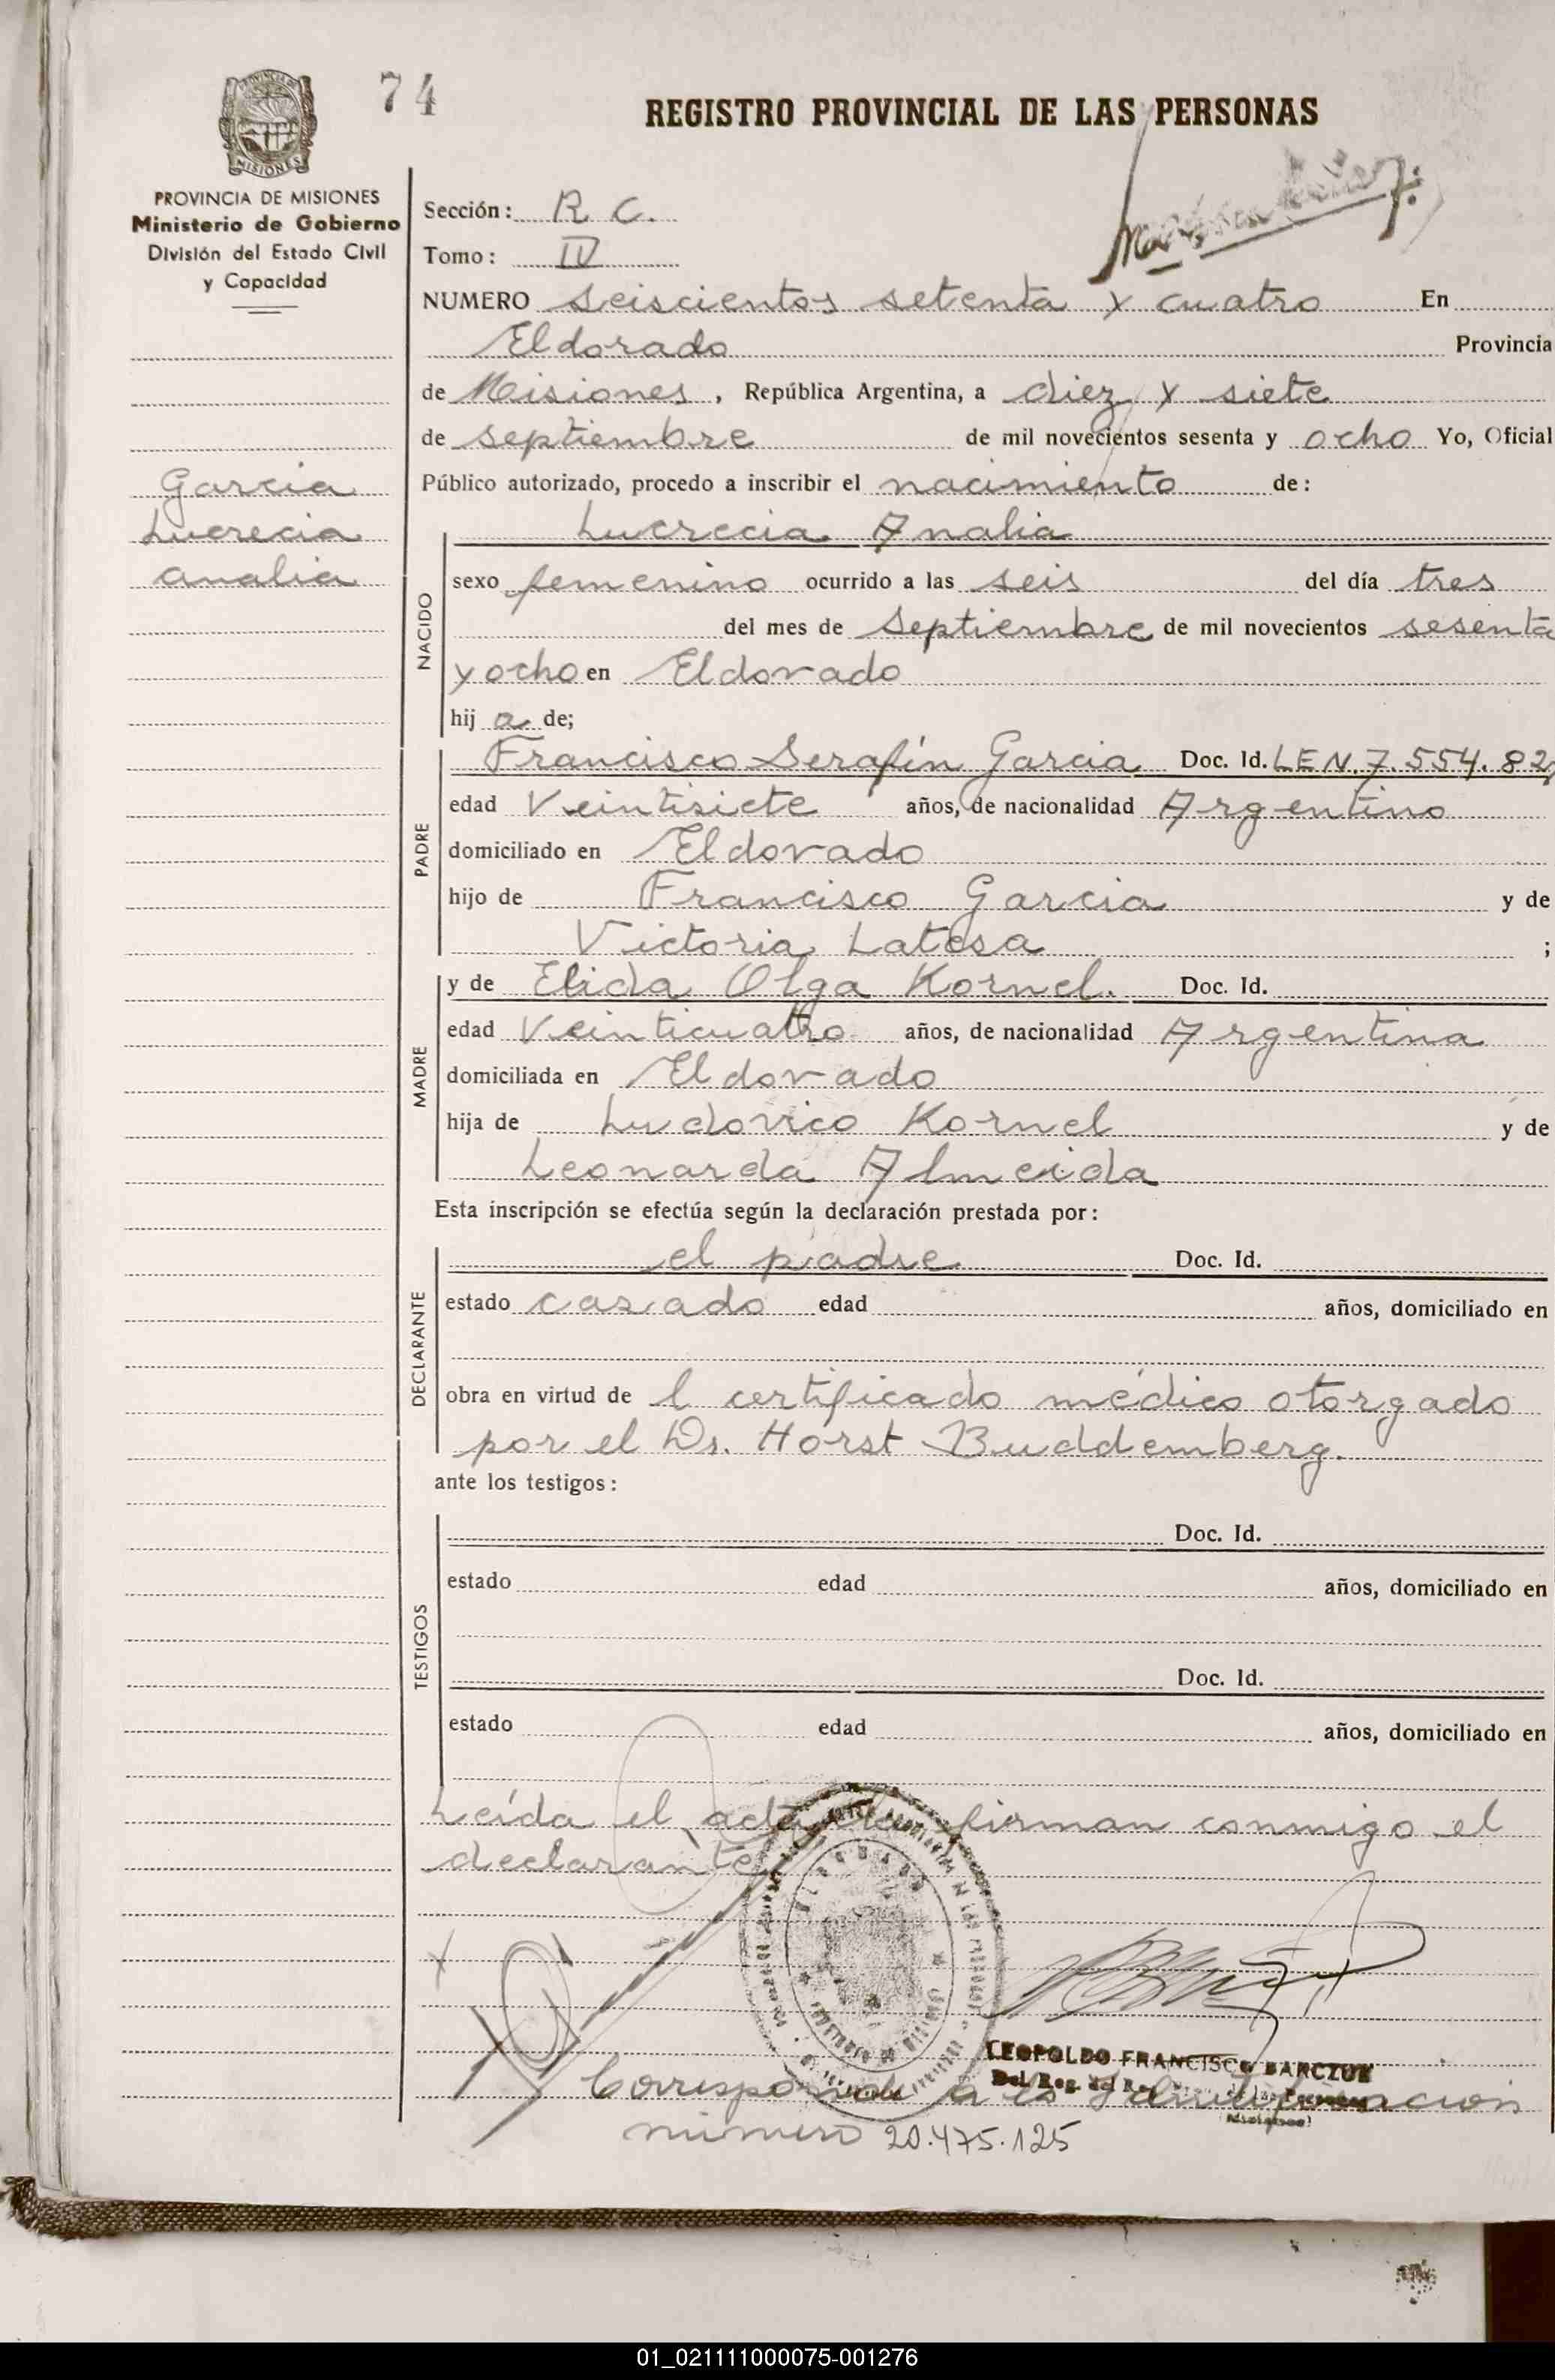 74
REGISTRO PROVINCIAL DE LAS PERSONAS
MISIONES
PROVINCIA DE MISIONES
Ministerio de Gobierno
División del Estado Civil
y Capacidad
Sección: R. C.
Tomo: IV
NUMERO seiscientos setenta y cuatro En
Eldorado Provincia
de Misiones, República Argentina, a diez y siete
de septiembre de mil novecientos sesenta y ocho Yo, Oficial
Garcia
Lucrecia
analia
Público autorizado, procedo a inscribir el nacimiento de:
Lucrecia Analia
NACIDO
sexo femenino ocurrido a las seis del día tres
del mes de Septiembre de mil novecientos sesenta
y ocho en Eldorado
hij a de;
PADRE
Francisco Serafín Garcia Doc. Id. L.E.N. 7.554.82
edad Veintisiete años, de nacionalidad Argentino
domiciliado en Eldorado
hijo de Francisco Garcia y de
Victoria Latesa ;
MADRE
y de Elida Olga Kornel. Doc. Id.
edad Veinticuatro años, de nacionalidad Argentina
domiciliada en Eldorado
hija de Ludovico Kornel y de
Leonarda Almeida
Esta inscripción se efectúa según la declaración prestada por:
DECLARANTE
el padre Doc. Id.
estado casado edad años, domiciliado en
obra en virtud de l certificado médico otorgado
por el Dr. Horst Buddemberg.
ante los testigos:
TESTIGOS
Doc. Id.
estado edad años, domiciliado en
Doc. Id.
estado edad años, domiciliado en
Leída el acta la firman conmigo el
declarante
LEOPOLDO FRANCISCO BARCZUK
Del. Reg. de las Personas
(Misiones)
Corresponde a la identificación
número 20.475.125
01_021111000075-001276